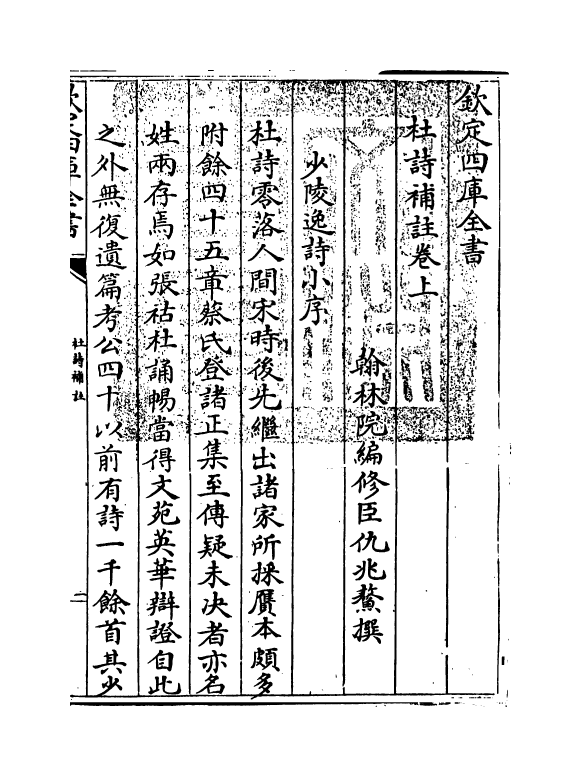 欽定四庫全書
杜詩補註卷上
翰林院編修臣仇兆鰲撰
少陵逸詩小序
杜詩零落人間宋時後先繼出諸家所採贗本頗多
附餘四十五章蔡氏登諸正集至傳疑未决者亦名
姓兩存焉如張祜杜誦暢當得文苑英華辯證自此
之外無復遺篇考公四十以前有詩一千餘首其少
欽定四庫全書
杜詩補註
二